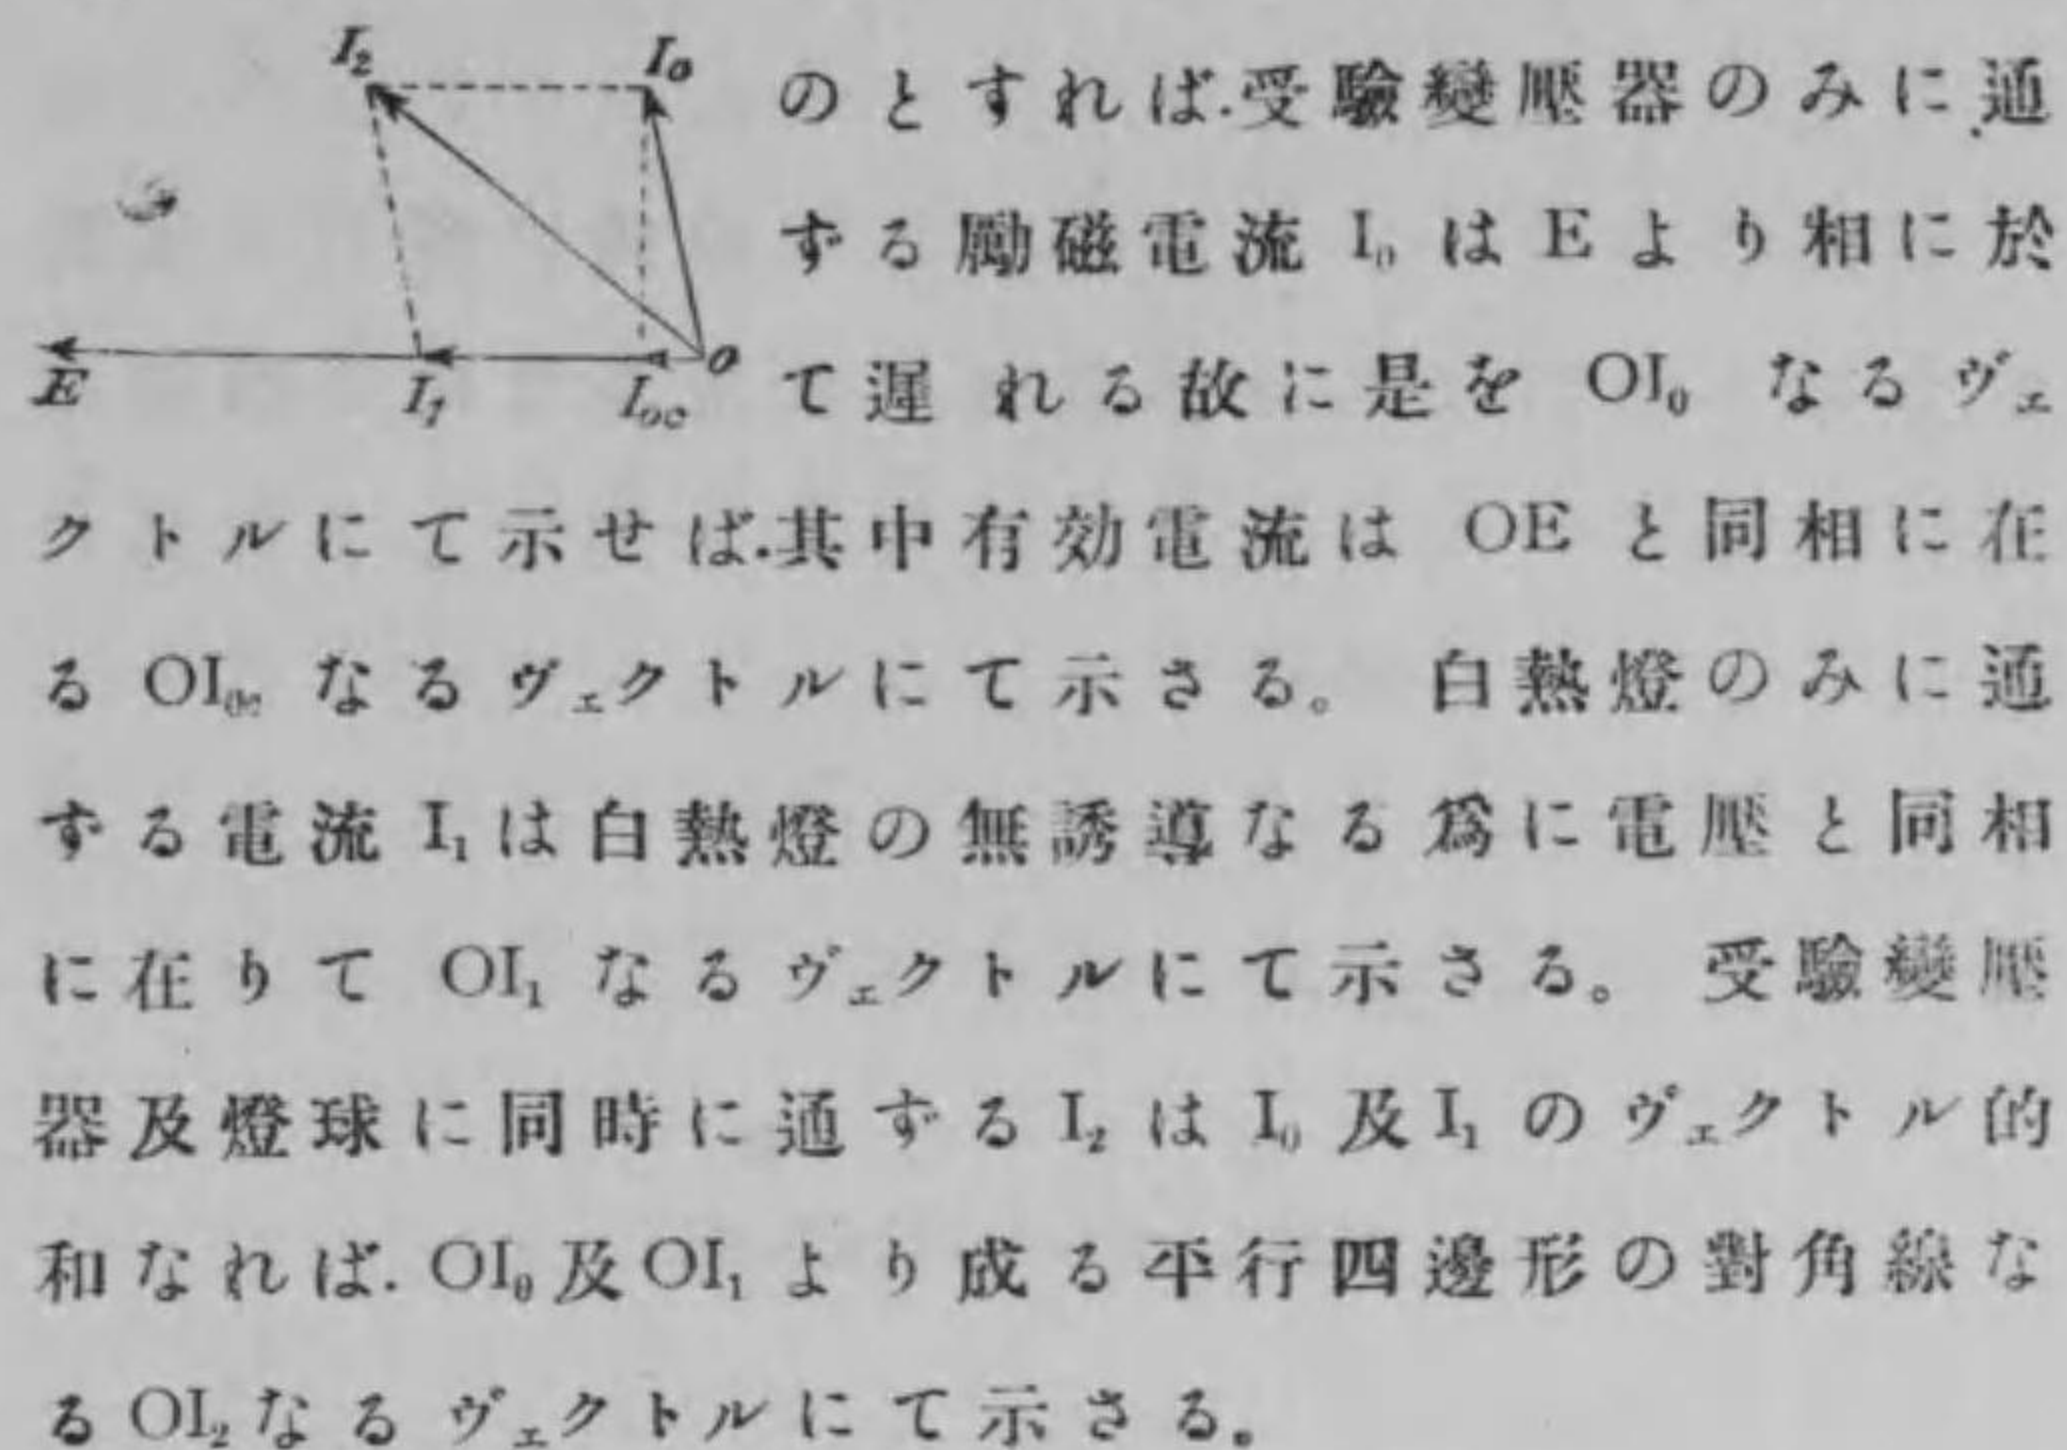 I₂ I₀
E I₁ I₀c O
のとすれば.受驗變壓器のみに通
ずる勵磁電流 I₀ は E より相に於
て遲れる故に是を OI₀ なるヴェ
クトルにて示せば.其中有効電流は OE と同相に在
る OI₀c なるヴェクトルにて示さる。 白熱燈のみに通
ずる電流 I₁ は白熱燈の無誘導なる爲に電壓と同相
に在りて OI₁ なるヴェクトルにて示さる。 受驗變壓
器及燈球に同時に通ずる I₂ は I₀ 及 I₁ のヴェクトル的
和なれば. OI₀ 及 OI₁ より成る平行四邊形の對角線な
る OI₂ なるヴェクトルにて示さる。